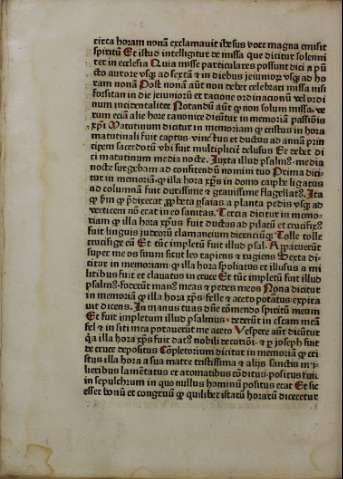 circa horam nonā exclamavit ihesus voce magna emisit
spiritū Et istud intelligitur de missa que dicitur solemni
ter in ecclesia Quia misse particulares possunt dici a pū
cto aurore vsq̃ ad sextā ⁊ in diebus ieiunioꝝ vsq̃ ad ho
ram nonā Post nonā aūt non debet celebrari missa nisi
forsitan in die ieiunioꝝ et racione ordinacionū vel ordi
num incidentaliter Notandū aūt q̃ non solum missa ve
rum eciā alie hore canonice dicūtur in memoriā passiōis
xp̄i Matutinum dicitur in memoriam q̃ cristus in hora
matutinali fuit captus vinctus et ductus ad annā prin
cipem sacerdotū vbi fuit multiplicẽ delusus Et debet di
ci matutinum media nocte Juxta illud psalmꝰ media
nocte surgebam ad confitendū nomini tuo Prima dici
tur in memoriā q̃ illa hora xp̄us in domo cayphe ligatus
ad columnā fuit durissime ⁊ grauissime flagellatꝰ Ita
q̃ sm̄ q̃ p̄dixerat ꝓpheta ysaias a planta pedis vsq̃ ad
verticem nō erat in eo sanitas Tercia dicitur in memo
riam q̃ illa hora xp̄us fuit ductus ad pilatū et crucifixꝰ
fuit linguis iudeorū clamancium dicenciūq̃ Tolle tolle
crucifige eū Et tūc impletū fuit illud psal Aperuerūt
super me os suum sicut leo rapiens ⁊ rugiens Sexta di
citur in memoriam q̃ illa hora spoliatus et illusus a mi
litibus fuit et clauatus in cruce Et tūc impletū fuit illud
psalmꝰ foderūt manꝰ meas ⁊ pedes meos Nona dicitur
in memoriā q̃ illa hora xp̄us felle ⁊ aceto potatus expira
uit dicens In manus tuas dn̄e cōmendo spiritū meum
Et fuit impletum illud psalmus dederūt in escam meā
fel ⁊ in siti mea potauerūt me aceto Vespere aūt dicūtur
q̄a illa hora xp̄us fuit datꝰ nobili centurioni ⁊ q̃ joseph fuit
de cruce depositus Cōpletorium dicitur in memoriā q̃ cri
stus illa hora a sua matre tristissima ⁊ alijs sanctis mu
lieribus lamētatus et aromatibus cōditus positus fuit
in sepulchrum in quo nullus hominū positus erat Et sic
esset bonū et congruū q̃ quilibet istarū horarū diceretur